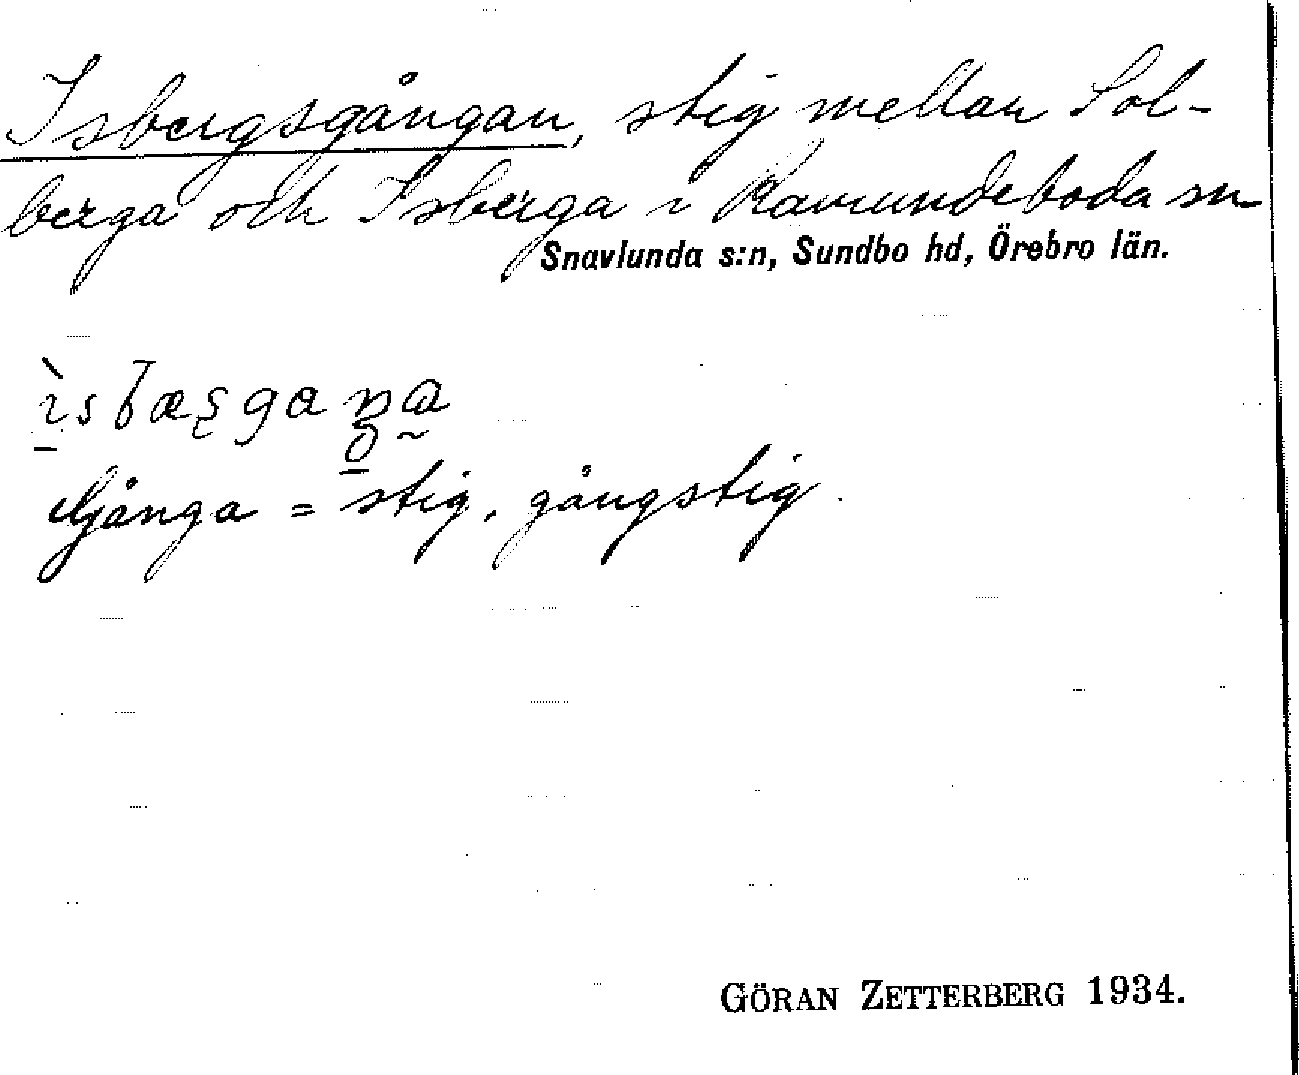 Isbergsgångan, stig mellan Sol-
berga och Isberga i Ramundeboda sn
Snavlunda s:n, Sundbo hd, Örebro län.
Gånga = stig, gångstig.
GÖRAN ZETTERBERG 1934.